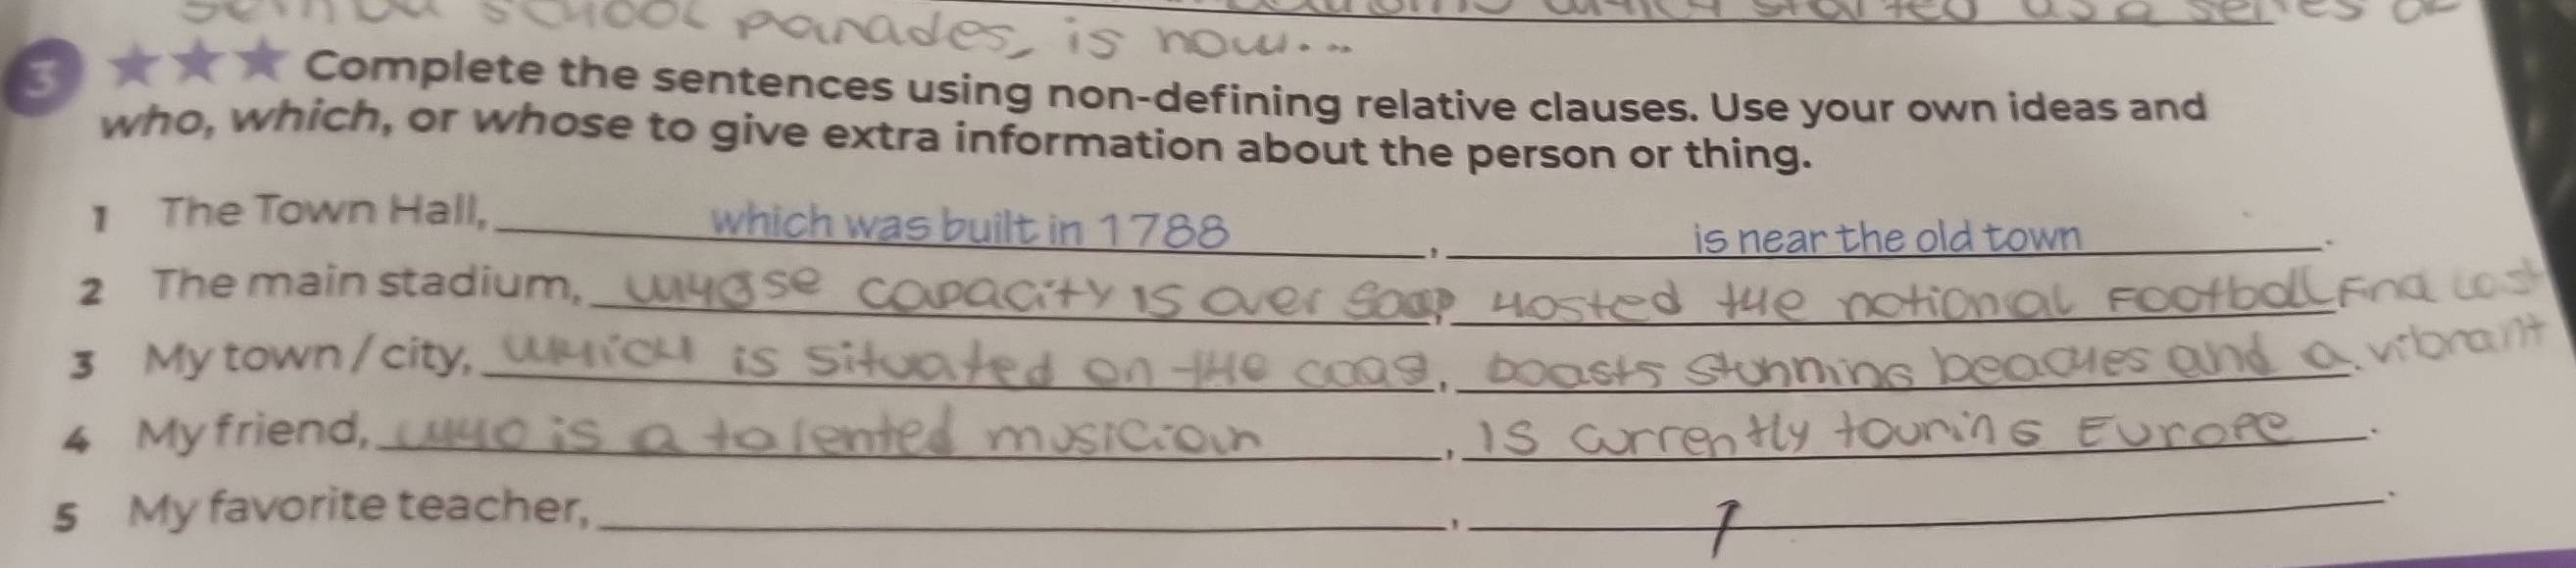 school parades, is now...
3 ★★★ Complete the sentences using non-defining relative clauses. Use your own ideas and
who, which, or whose to give extra information about the person or thing.
1 The Town Hall, which was built in 1788, is near the old town.
2 The main stadium, whose capacity is over, Hosted the national Football Final last
3 My town / city, which is situated on the, boasts stunning beaches and a vibrant
4 My friend, who is a talented musician, is currently touring Europe.
5 My favorite teacher, , .